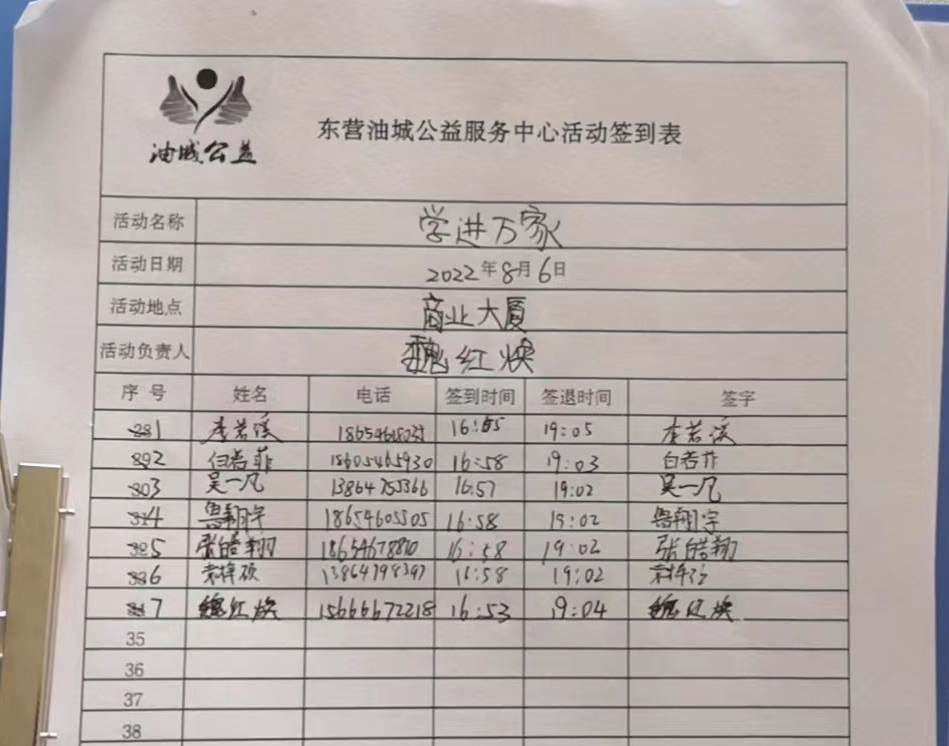 油城公益
东营油城公益服务中心活动签到表
活动名称 学进万家
活动日期 2022年8月6日
活动地点 商业大厦
活动负责人 魏红焕
序号 姓名 电话 签到时间 签退时间 签字
1 李若溪 16:55 19:05 李若溪
2 白若菲 18605465930 16:58 19:03 白若菲
3 吴一凡 13864755366 16:57 19:02 吴一凡
4 鲁翔宇 18654605505 16:58 19:02 鲁翔宇
5 张皓翔 18654678810 16:58 19:02 张皓翔
6 16:58 19:02
7 魏红焕 15666672218 16:53 19:04 魏红焕
35
36
37
38